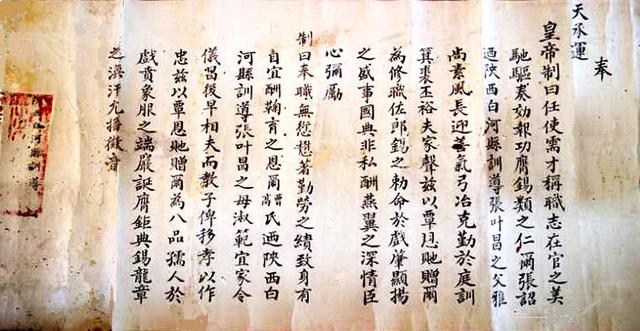 奉
天承運
皇帝制曰任使需才稱職志在官之美
馳驅奏効報功膺錫類之仁爾張詔
迺陝西白河縣訓導張叶昌之父雅
尚素風長迎善氣弓冶克勤於庭訓
箕裘丕裕夫家聲茲以覃恩貤贈爾
為修職佐郎錫之勅命於戲肇顯揚
之盛事國典非私酬燕翼之深情臣
心彌勵
制曰奉職無愆懋著勤勞之績致身有
自宜酬鞠育之恩爾曹氏迺陝西白
河縣訓導張叶昌之母淑範宜家令
儀昌後早相夫而教子俾移孝以作
忠茲以覃恩貤贈爾為八品孺人於
戲賁象服之端嚴誕膺鉅典錫龍章
之渙汗允播徽音
河縣訓導